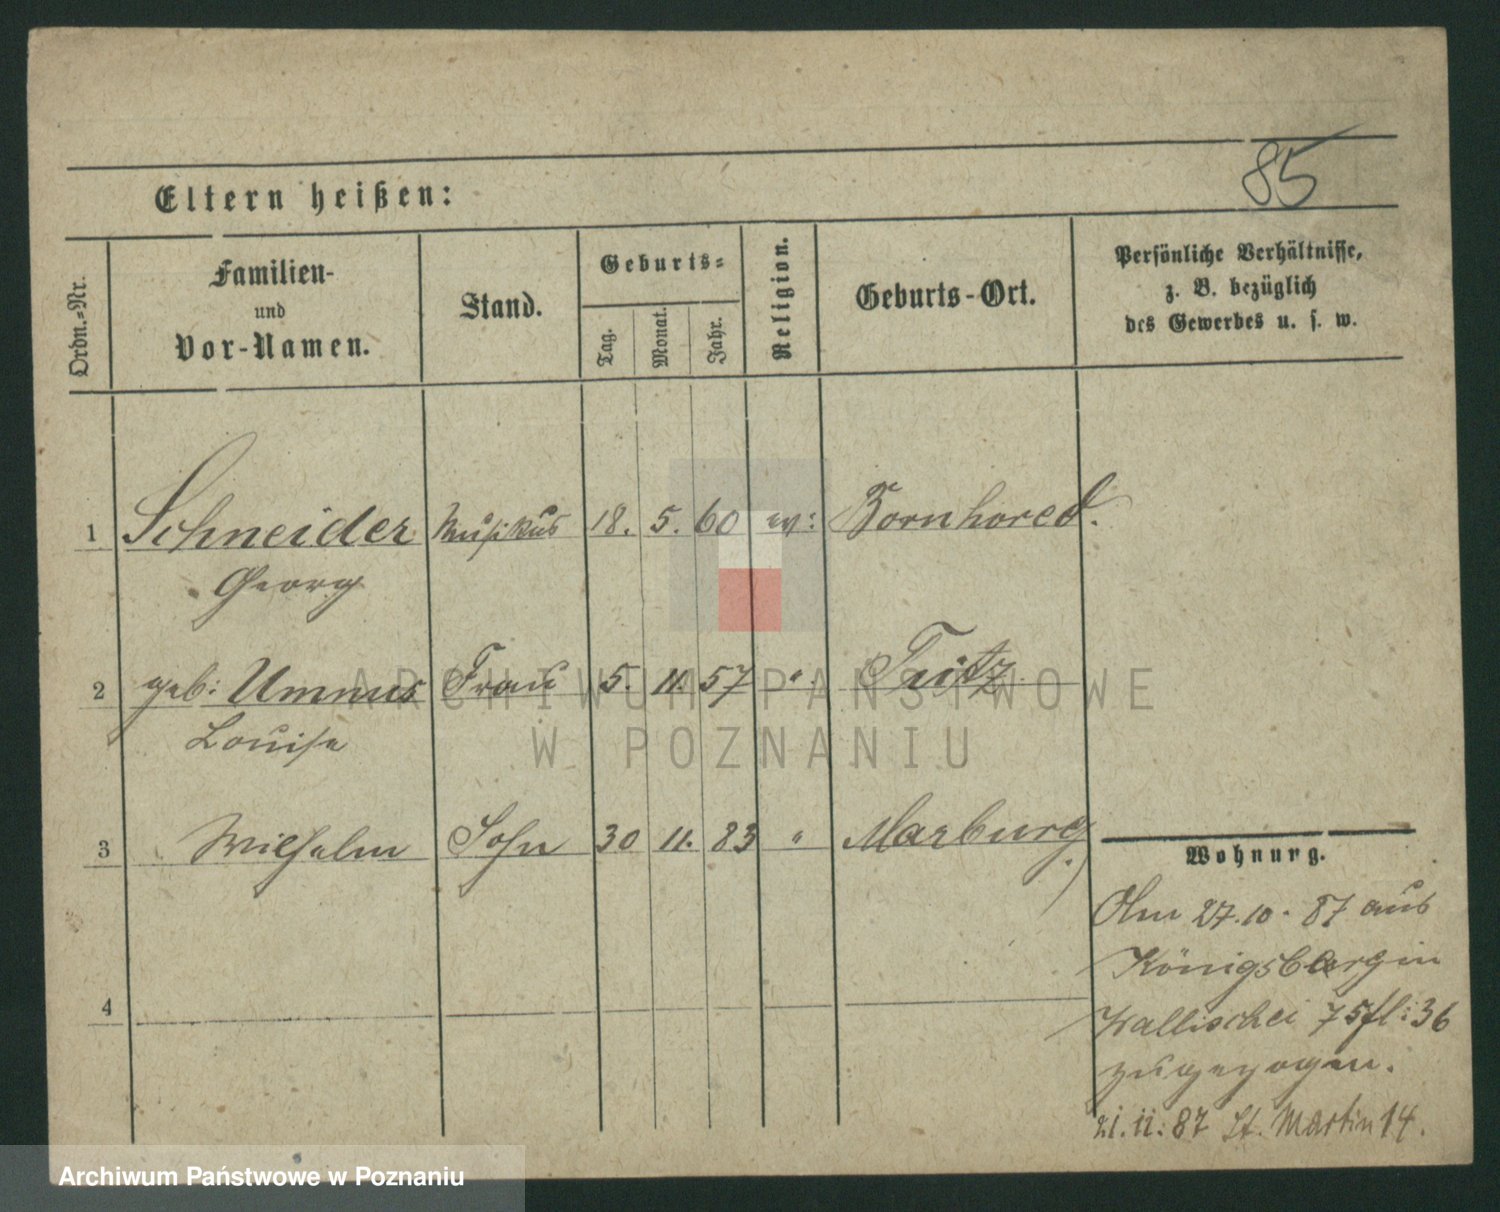 85
Eltern heißen:
Ordn.-Nr.
Familien-
und
Vor-Namen.
Stand.
Geburts-
Tag.
Monat.
Jahr.
Religion.
Geburts-Ort.
Persönliche Verhältnisse,
z. B. bezüglich
des Gewerbes u. s. w.
1 Schneider Musikus 18. 5. 60 ev:
Georg
2 geb: Frau 5. 11. 57 "
Louise
3 Wilhelm Sohn 30 11. 83 " Marburg
4
Wohnung.
Am 27.10. 87 aus
Königsberg in
Wallischei 36
zugezogen.
21.11.87 St. Martin 14.
ARCHIWUM PAŃSTWOWE
W POZNANIU
Archiwum Państwowe w Poznaniu